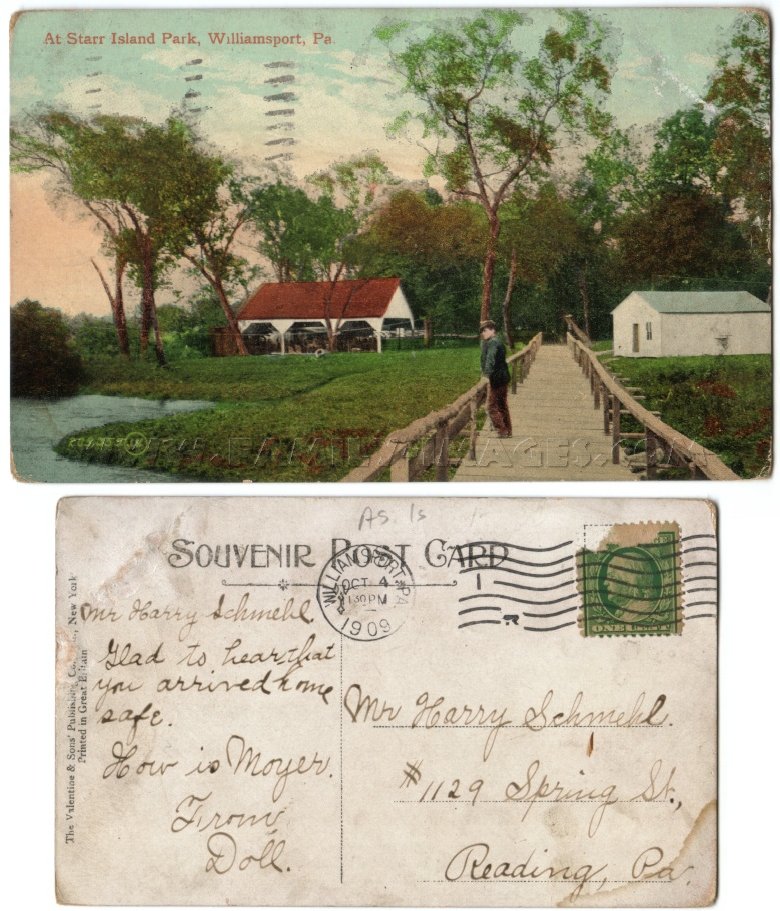 At Starr Island Park, Williamsport, Pa.
WWW.FAMILY-IMAGES.COM
As Is
SOUVENIR POST CARD
WILLIAMSPORT, PA.
OCT 4
1 30 PM
1909
1
Mr Harry Schmehl.
Glad to hear that
you arrived home
safe.
How is Moyer.
From
Doll.
Mr Harry Schmehl.
#1129 Spring St.,
Reading, Pa.
The Valentine & Sons' Publishing Co., New York
Printed in Great Britain